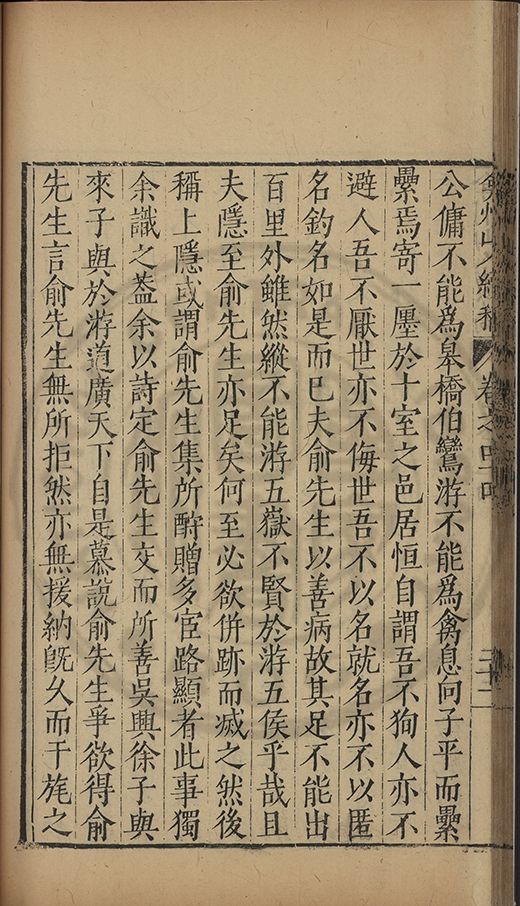 弇州山人續稿 卷之四十四 二十二
公傭不能爲皋橋伯鸞游不能爲禽息向子平而纍
纍焉寄一廛於十室之邑居恒自謂吾不狥人亦不
避人吾不厭世亦不侮世吾不以名就名亦不以匿
名釣名如是而已夫俞先生以善病故其足不能出
百里外雖然縱不能游五嶽不賢於游五侯乎哉且
夫隱至俞先生亦足矣何至必欲併跡而滅之然後
稱上隱或謂俞先生集所酧贈多宦路顯者此事獨
余識之葢余以詩定俞先生交而所善吳興徐子與
來子與於游道廣天下自是慕說俞先生爭欲得俞
先生言俞先生無所拒然亦無援納旣久而干旄之